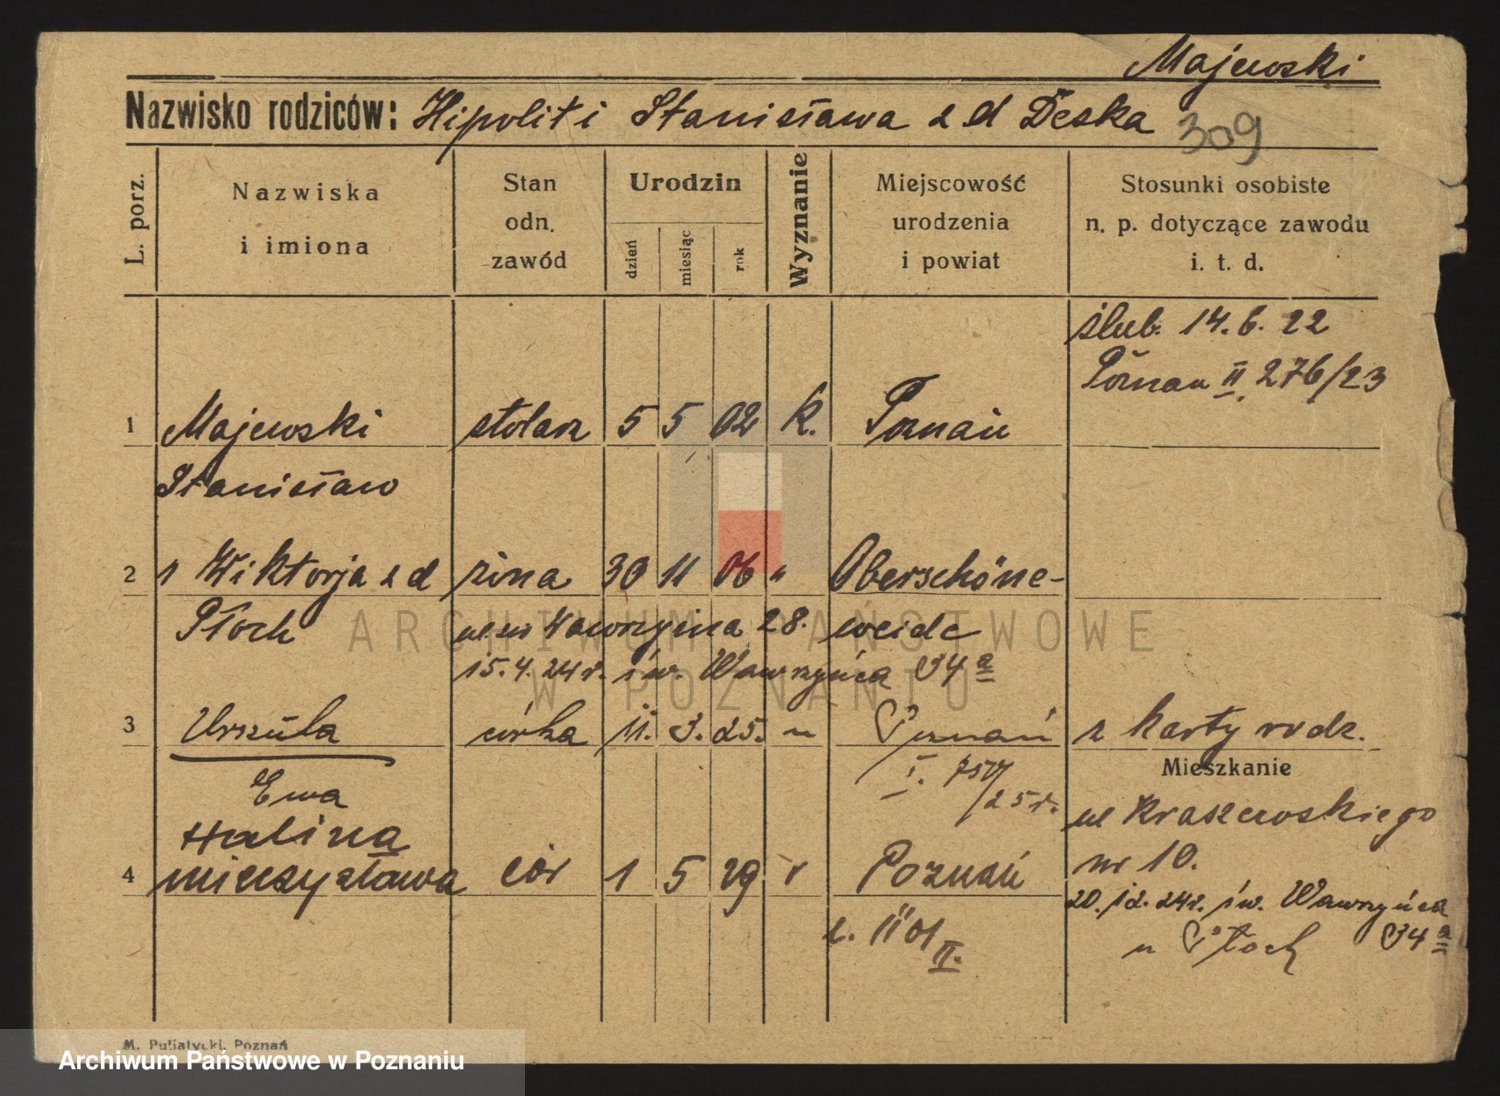 Majewski
Nazwisko rodziców: Hipolit i Stanisława z d Deska
309
L. porz.
Nazwiska
i imiona
Stan
odn.
zawód
Urodzin
dzień
miesiąc
rok
Wyznanie
Miejscowość
urodzenia
i powiat
Stosunki osobiste
n. p. dotyczące zawodu
i. t. d.
ślub. 14. 6. 22
Poznań II. 276/23
1 Majewski stolarz 5 5 02 k. Poznań
Stanisław
2 Wiktorja z d żona 30 11 06 " Oberschöne-
Płoch ul. św Wawrzyńca 28. weide
15. 4. 24 r. św. Wawrzyńca 34 a
3 Urszula córka 11. 3. 25. " Poznań z karty rodz.
Mieszkanie
Ewa I. /25 r.
ul Kraszewskiego
Halina
nr 10.
4 Mieczysława cór 1 5 29 Poznań
20. 12. 24 r. św. Wawrzyńca
II. u Płoch 34 a
ARCHIWUM PAŃSTWOWE
W POZNANIU
M. Puliatycki, Poznań
Archiwum Państwowe w Poznaniu